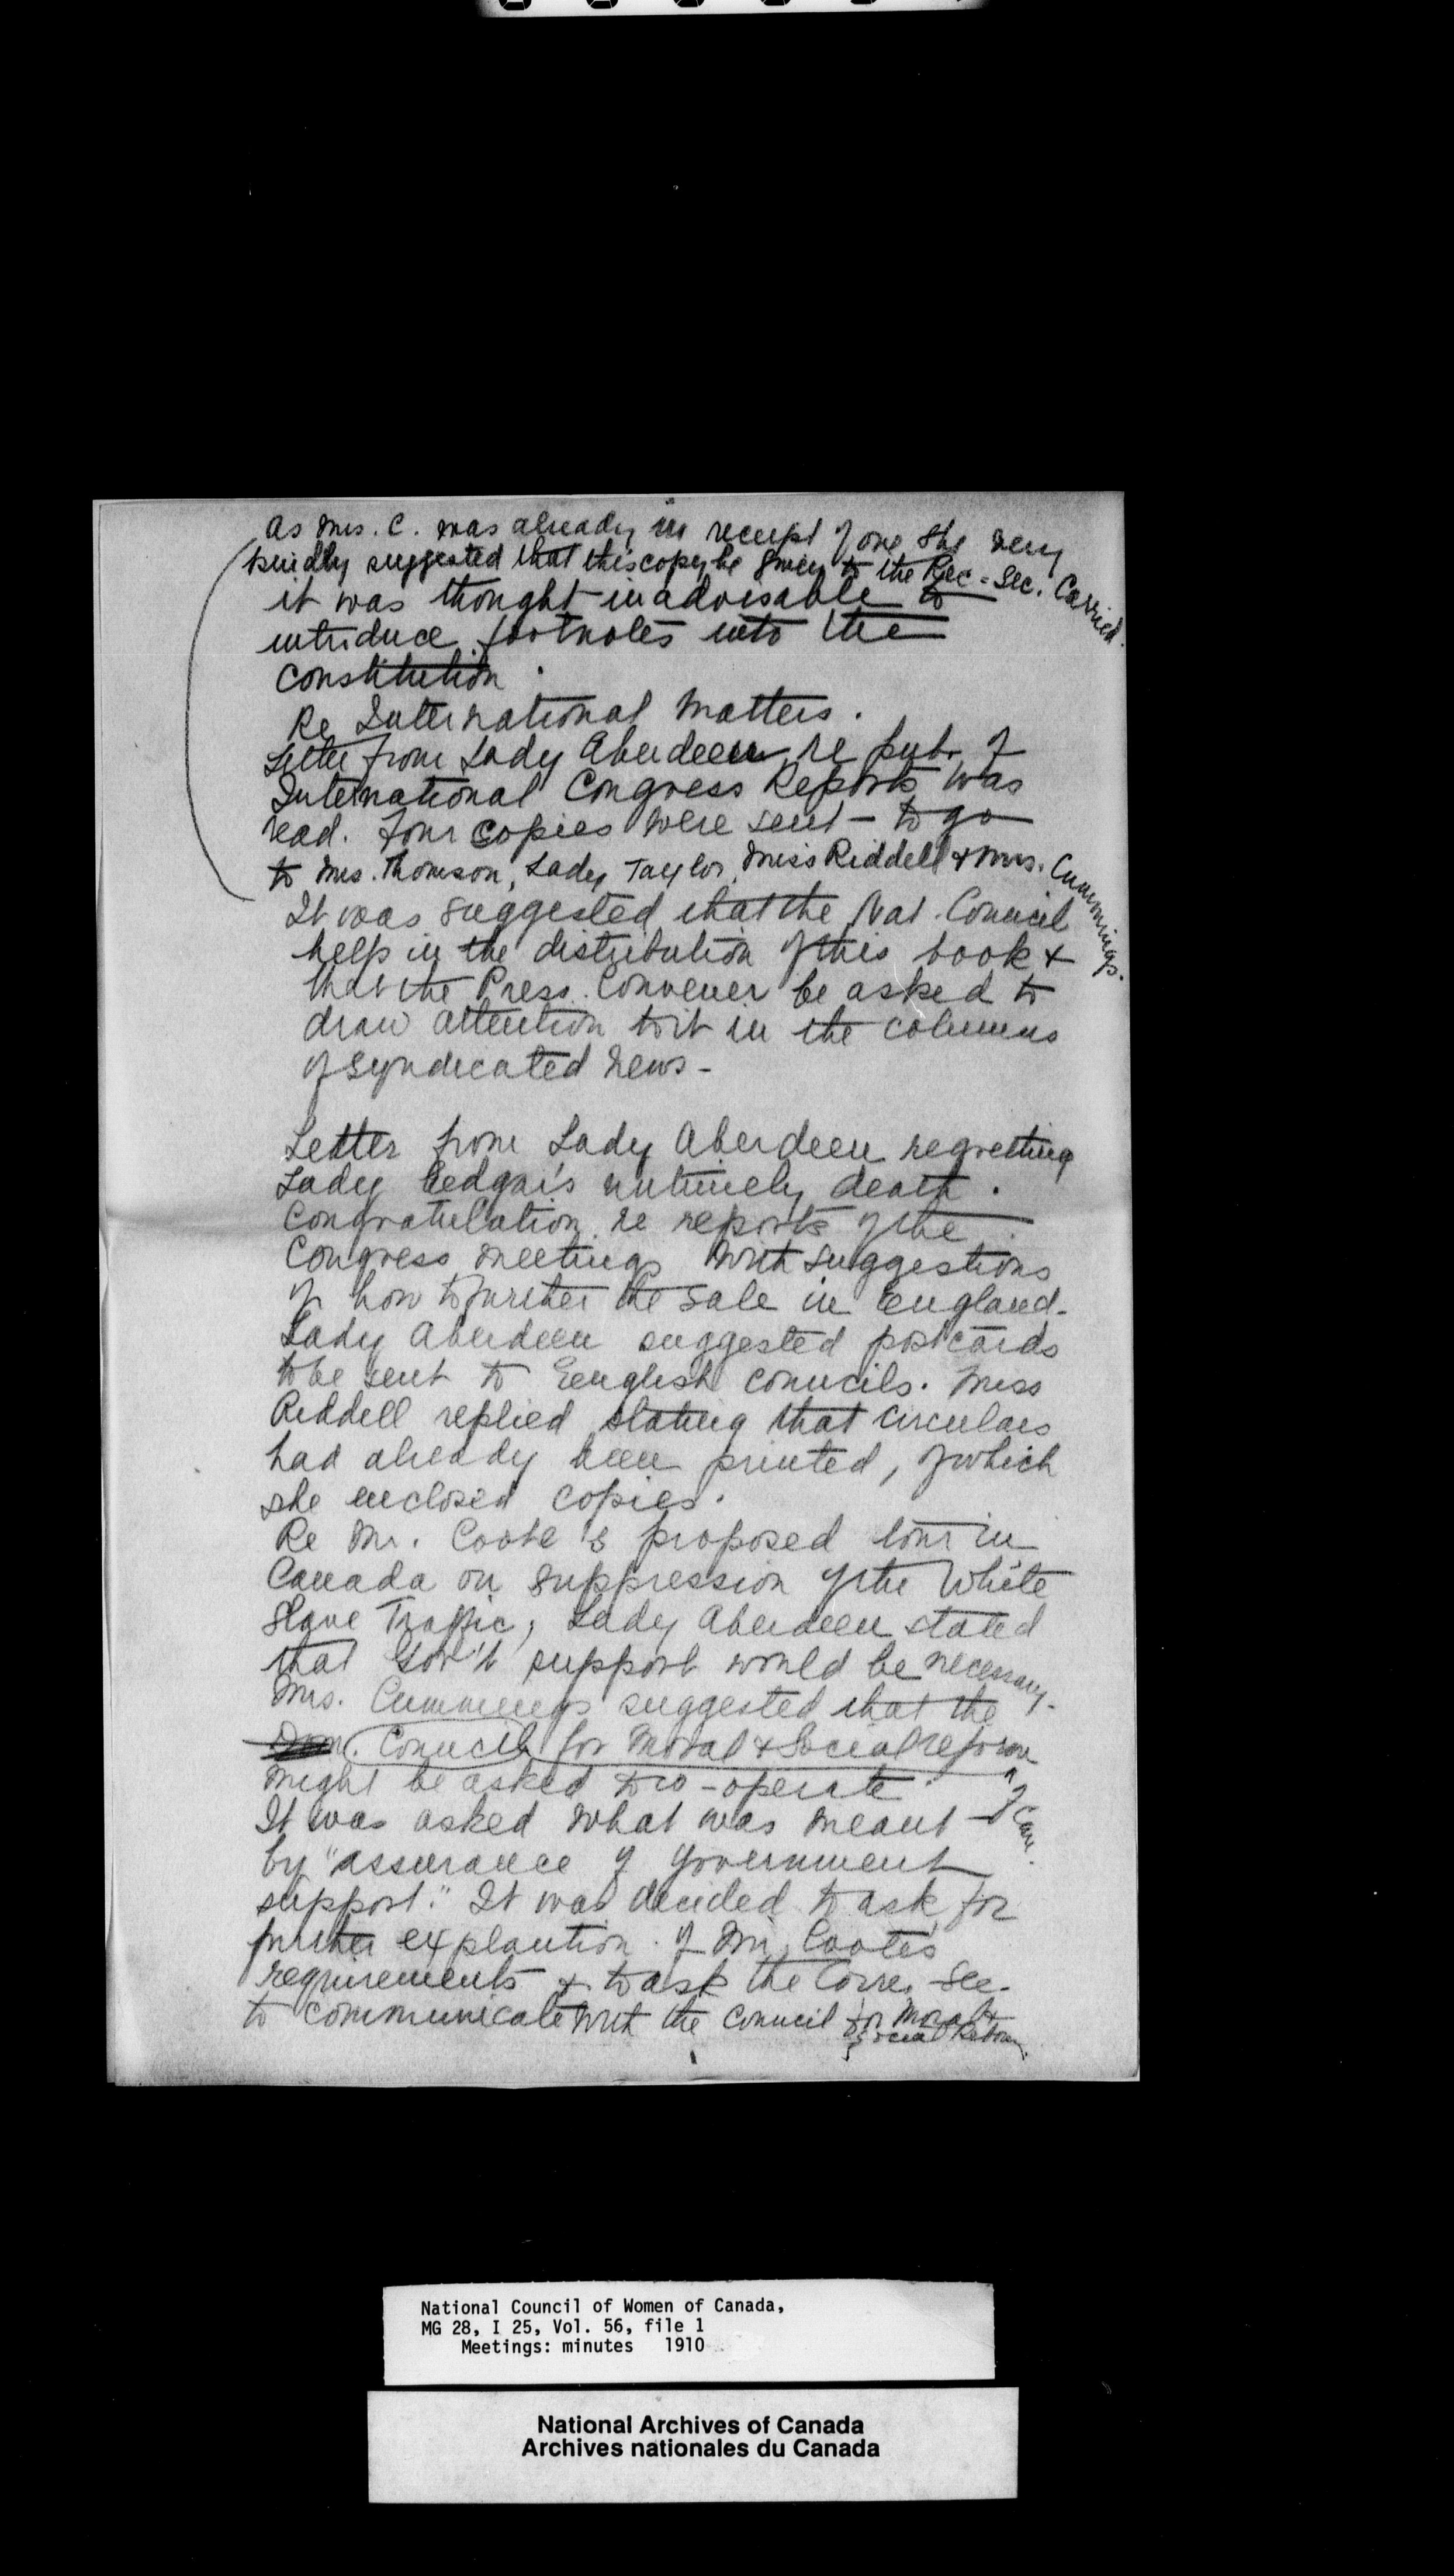 as Mrs. C. was already in receipt of one she very
kindly suggested that this copy be given to the Rec-Sec. Carried.
it was thought inadvisable to
introduce footnotes into the
constitution.
Re International Matters.
Letter from Lady Aberdeen re pub. of
International Congress Reports was
read. Four copies were sent - to go
to Mrs. Thomson, Lady Taylor, Miss Riddell & Mrs. Cummings.
It was suggested that the Nat. Council
help in the distribution of this book &
that the Press. Convener be asked to
draw attention to it in the columns
of syndicated news -
Letter from Lady Aberdeen regretting
Lady Eedgar's untimely death.
Congratulation re reports of the
Congress meetings with suggestions
of how to further the sale in England -
Lady Aberdeen suggested postcards
to be sent to English councils. Miss
Riddell replied stating that circulars
had already been printed, of which
she enclosed copies.
Re Mr. Coote's proposed tour in
Canada on suppression of the White
Slave Traffic, Lady Aberdeen stated
that Gov't support would be necessary -
Mrs. Cummings suggested that the
Council for Moral & Social reform
of Can.
might be asked to co-operate.
It was asked what was meant
by "assurance of government
support." It was decided to ask for
further explaution of Mr. Coote's
requirements & to ask the Corre. Sec.
to communicate with the Council for Moral &
Social Reform.
National Council of Women of Canada,
MG 28, I 25, Vol. 56, file 1
Meetings: minutes 1910
National Archives of Canada
Archives nationales du Canada